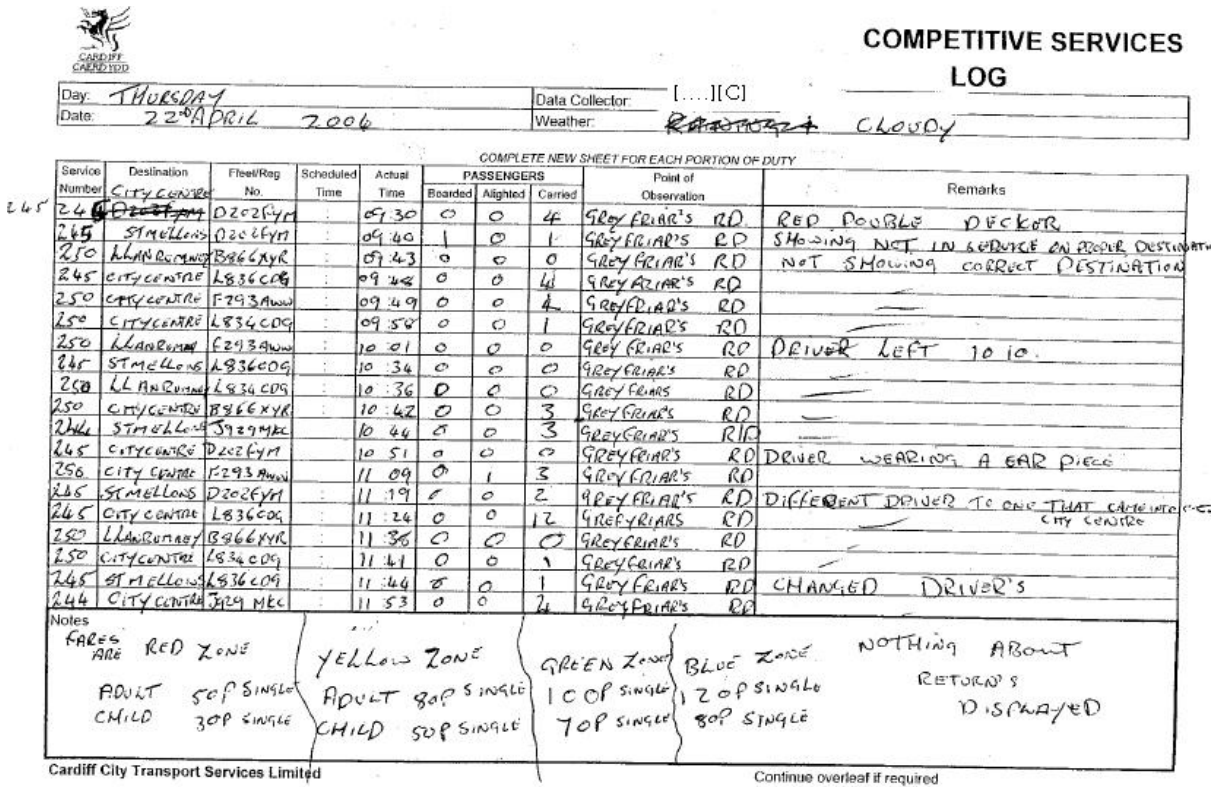 CARDIFF
CAERDYDD
COMPETITIVE SERVICES
LOG
Day: THURSDAY Data Collector: [....][C]
Date: 22ND APRIL 2004 Weather: CLOUDY
COMPLETE NEW SHEET FOR EACH PORTION OF DUTY
Service Number Destination Fleet/Reg No. Scheduled Time Actual Time PASSENGERS Boarded Alighted Carried Point of Observation Remarks
245 CITY CENTRE D202FYM : 09:30 0 0 4 GREY FRIAR'S RD. RED DOUBLE DECKER
245 ST MELLONS D202FYM : 09:40 1 0 1 GREY FRIAR'S RD SHOWING NOT IN SERVICE ON PROPER DESTINATION
250 LLANRUMNEY B866XYR : 09:43 0 0 0 GREY FRIAR'S RD NOT SHOWING CORRECT DESTINATION
245 CITY CENTRE L836CDG : 09:48 0 0 4 GREY FRIAR'S RD —
250 CITY CENTRE F293AWW : 09:49 0 0 4 GREYFRIAR'S RD —
250 CITY CENTRE L834CDG : 09:58 0 0 1 GREYFRIAR'S RD —
250 LLANRUMNEY F293AWW : 10:01 0 0 0 GREY FRIAR'S RD DRIVER LEFT 10 10.
245 ST MELLONS L836CDG : 10:34 0 0 0 GREY FRIAR'S RD —
250 LLANRUMNEY L834 CDG : 10:36 0 0 0 GREY FRIARS RD —
250 CITY CENTRE B866XYR : 10:42 0 0 3 GREY FRIARS RD —
244 ST MELLONS J929MKC : 10 44 0 0 3 GREYFRIAR'S RD —
245 CITY CENTRE D202FYM : 10 51 0 0 0 GREYFRIAR'S RD DRIVER WEARING A EAR PIECE
250 CITY CENTRE F293 AWW : 11 09 0 1 3 GREY FRIAR'S RD
245 ST MELLONS D202FYM : 11 19 0 0 2 GREY FRIAR'S RD DIFFERENT DRIVER TO ONE THAT CAME INTO
CITY CENTRE
245 CITY CENTRE L836CDG : 11:24 0 0 12 GREFYRIARS RD —
250 LLANRUMNEY B866XYR : 11:36 0 0 0 GREYFRIAR'S RD —
250 CITY CENTRE L834 CDG : 11:41 0 0 1 GREYFRIAR'S RD —
245 ST MELLONS L836CDG : 11:44 0 0 1 GREYFRIAR'S RD CHANGED DRIVER'S
244 CITY CENTRE J929 MKC : 11 53 0 0 4 GREYFRIAR'S RD —
Notes
FARES ARE RED ZONE YELLOW ZONE GREEN ZONE BLUE ZONE NOTHING ABOUT
ADULT 50P SINGLE ADULT 80P SINGLE 100P SINGLE 120P SINGLE RETURN'S
CHILD 30P SINGLE CHILD 50P SINGLE 70P SINGLE 80P SINGLE DISPLAYED
Cardiff City Transport Services Limited Continue overleaf if required